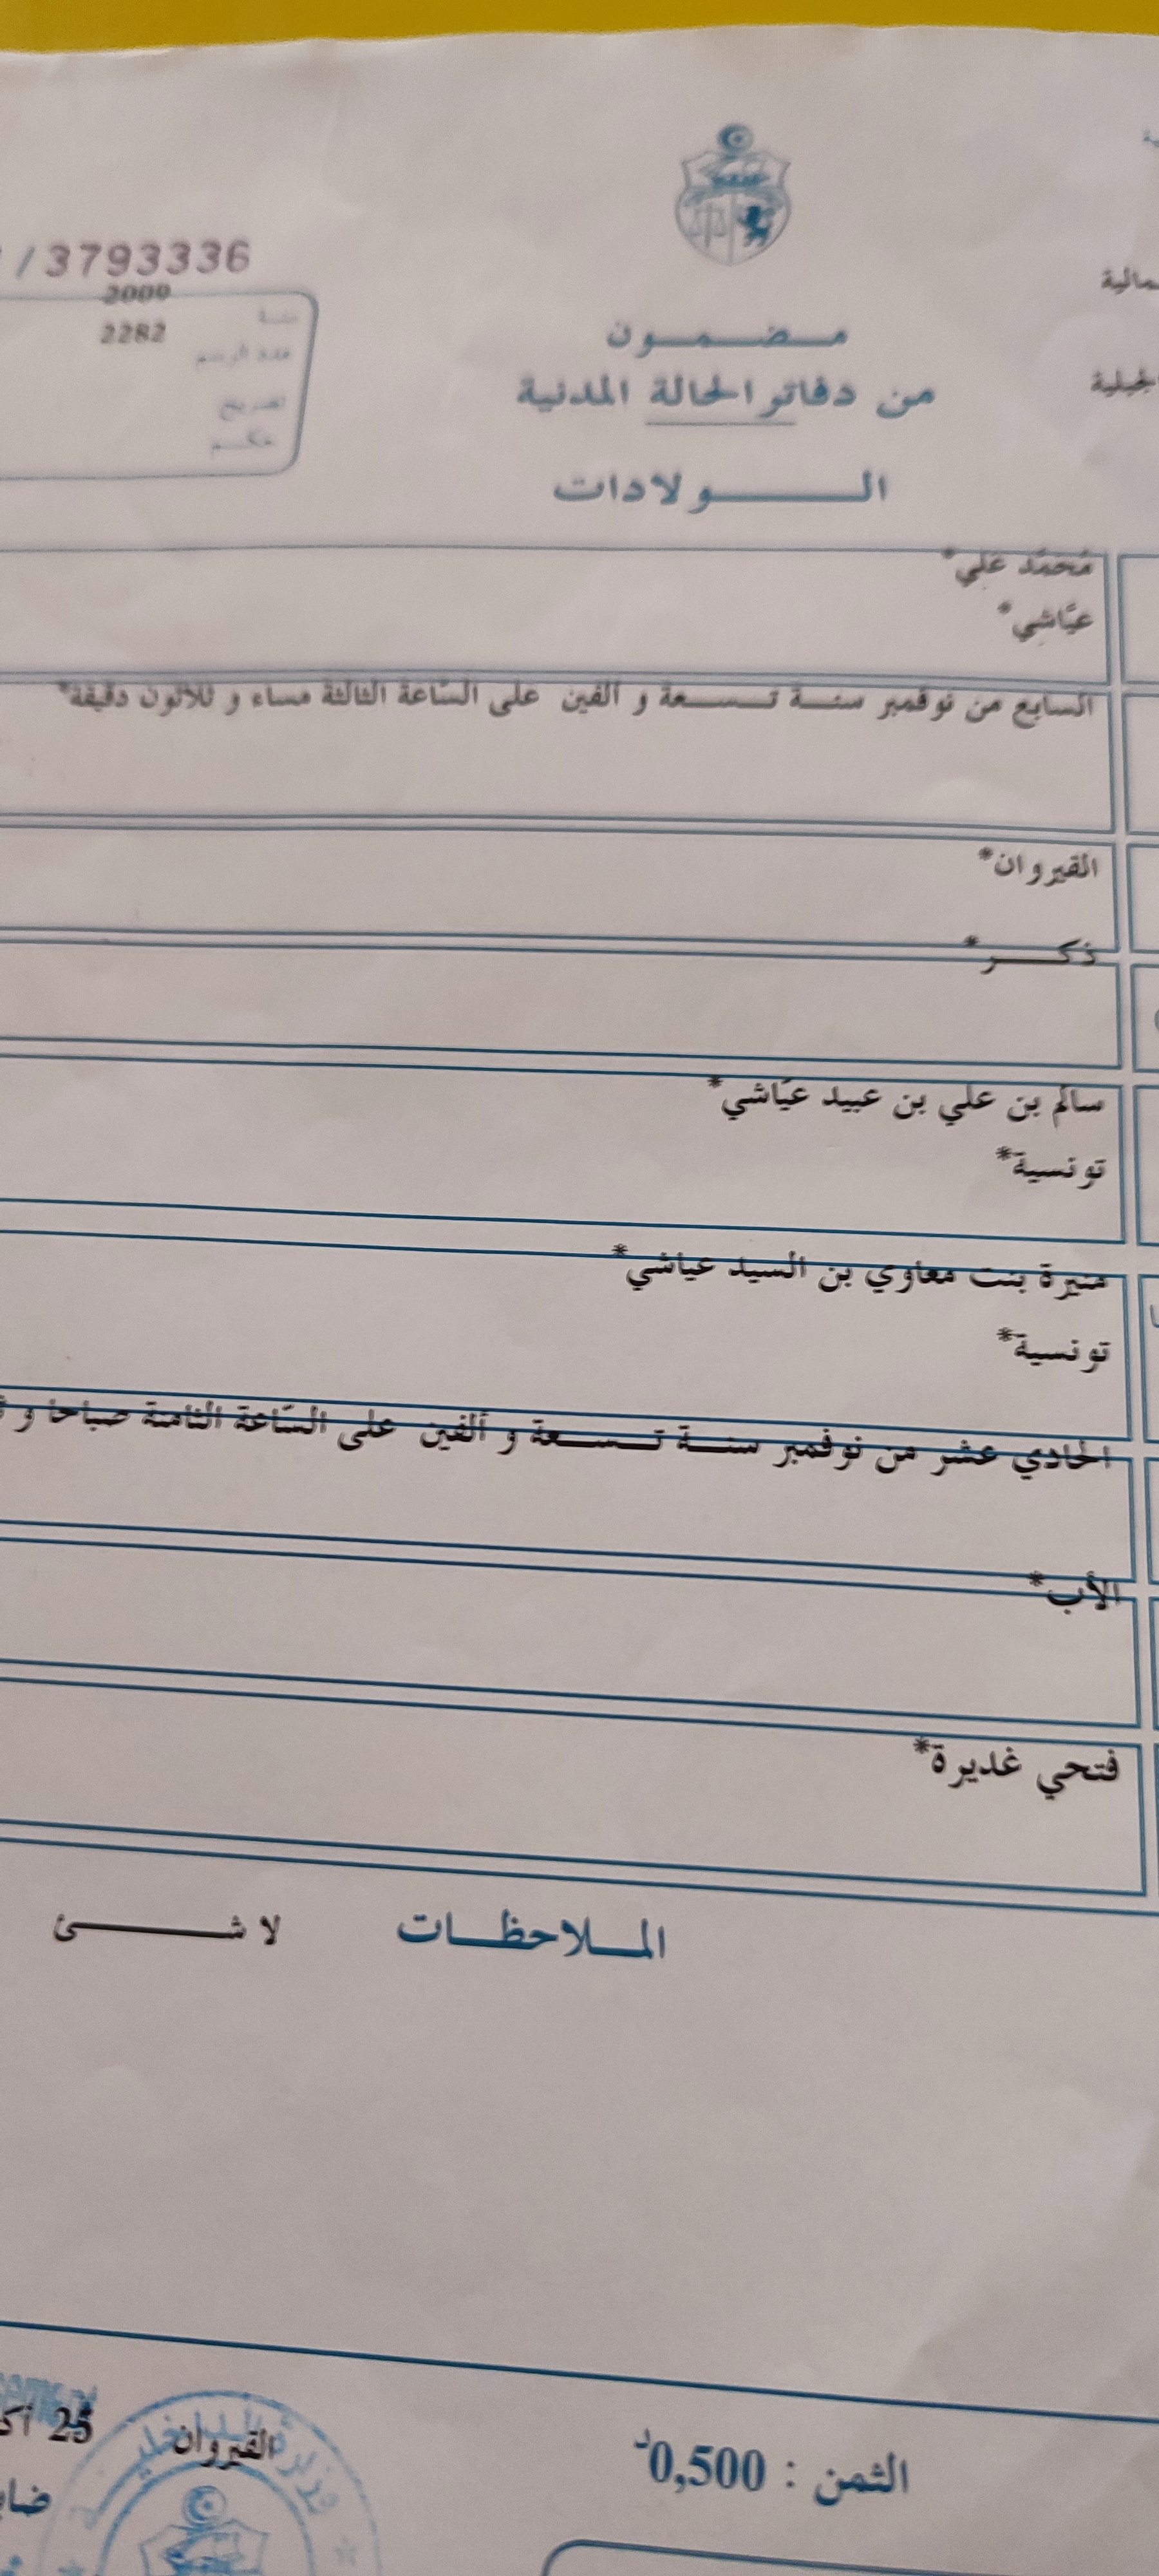 /3793336
2009
سنة
2282
عدد الرسم
تصريح
حكم
مضمون
من دفاتر الحالة المدنية
الولادات
محمّد علي*
عيّاشي*
السابع من نوفمبر سنة تسعة و ألفين على السّاعة الثالثة مساء و ثلاثون دقيقة*
القيروان*
ذكر*
سالم بن علي بن عبيد عيّاشي*
تونسية*
منيرة بنت معاوي بن السيد عياشي*
تونسية*
الحادي عشر من نوفمبر سنة تسعة و ألفين على السّاعة الثامنة صباحا و
الأب*
فتحي غديرة*
الملاحظات لا شئ
القيروان 25
وزارة الداخلية
الثمن : 0,500د